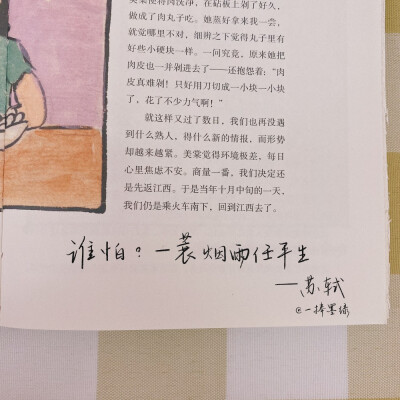 美棠便将肉洗净，在砧板上剁了好久，
做成了肉丸子吃。她蒸好拿来我一尝，
就觉哪里不对，细辨之下觉得丸子里有
好些小硬块一样。一问究竟，原来她把
肉皮也一并剁进去了——还抱怨着：“肉
皮真难剁！只好用刀切成一小块一小块
了，花了不少力气啊！”
就这样又过了数日，我们也再没遇
到什么熟人，得什么新的情报，而形势
却越来越紧。美棠觉得环境极差，每日
心里焦虑不安。商量一番，我们决定还
是先返江西。于是当年十月中旬的一天，
我们仍是乘火车南下，回到江西去了。
谁怕？一蓑烟雨任平生
——苏轼
@一捧墨绿